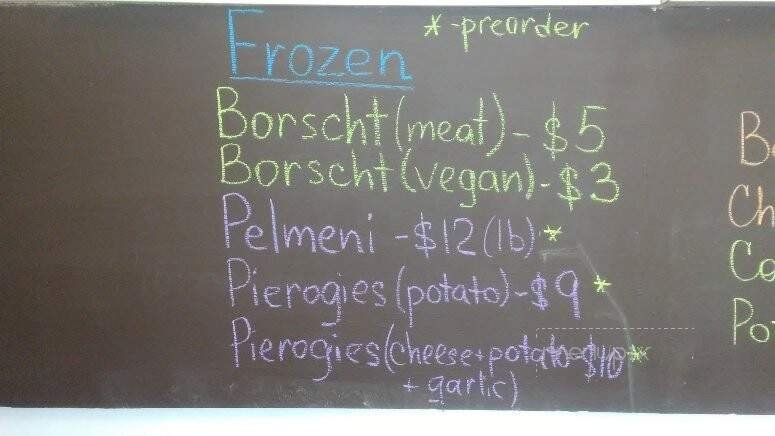 *-preorder
Frozen
Borscht (meat) - $5
Borscht (vegan) - $3
Pelmeni - $12 (lb) *
Pierogies (potato) - $9 *
Pierogies (cheese + potato $10 *
+ garlic)
Ch
Co
Po